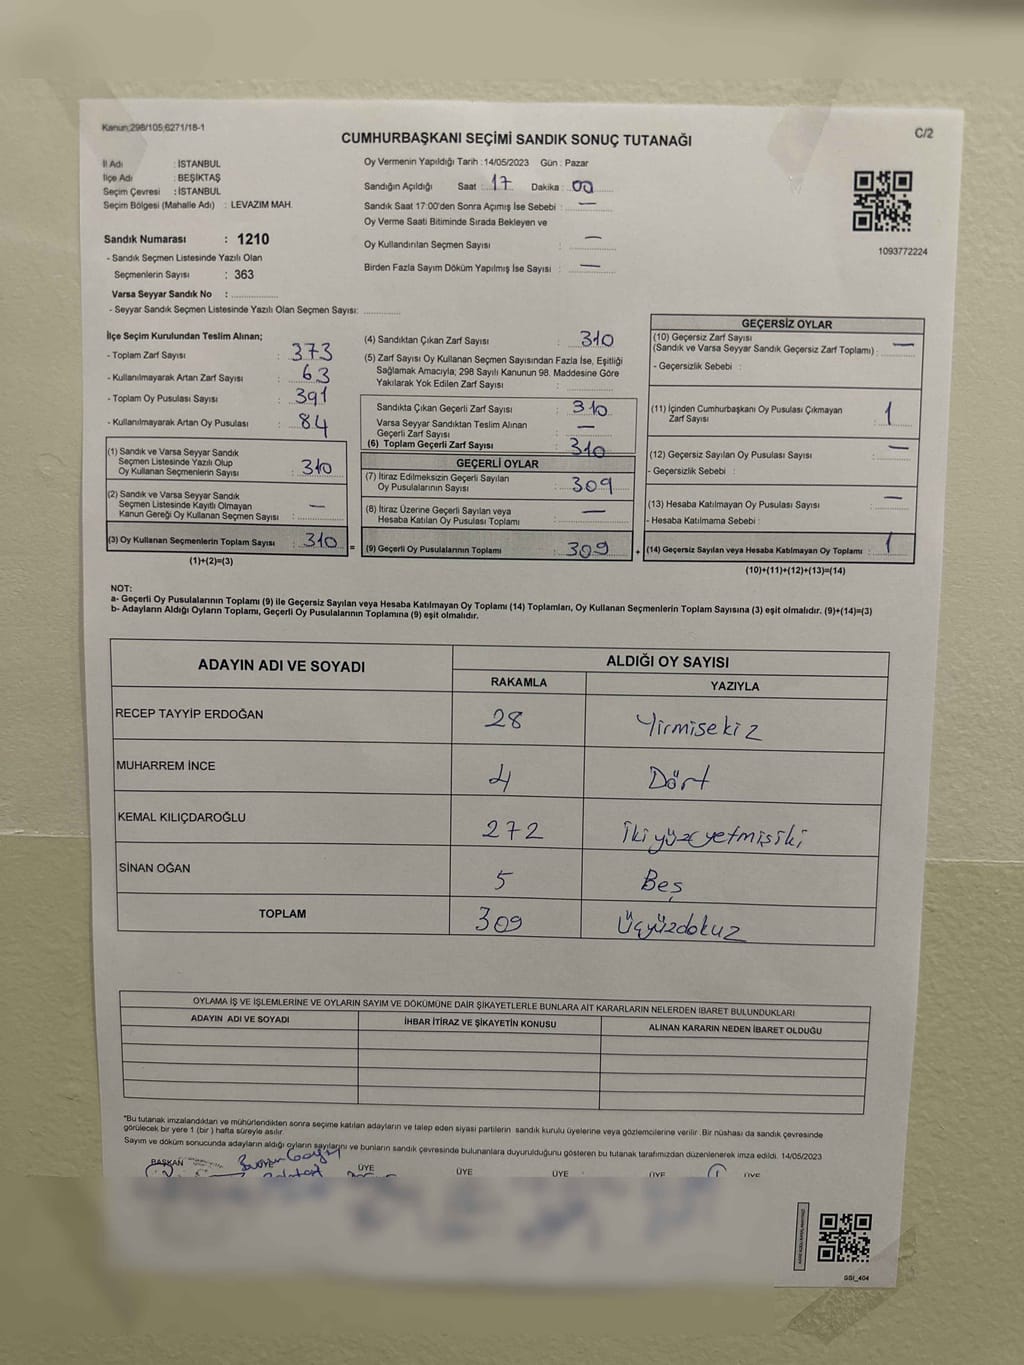 Kanun:298/105;6271/18-1
C/2
CUMHURBAŞKANI SEÇİMİ SANDIK SONUÇ TUTANAĞI
İl Adı : İSTANBUL
İlçe Adı : BEŞİKTAŞ
Seçim Çevresi : İSTANBUL
Seçim Bölgesi (Mahalle Adı) : LEVAZIM MAH.
Sandık Numarası : 1210
- Sandık Seçmen Listesinde Yazılı Olan
Seçmenlerin Sayısı : 363
Varsa Seyyar Sandık No :
- Seyyar Sandık Seçmen Listesinde Yazılı Olan Seçmen Sayısı:
Oy Vermenin Yapıldığı Tarih : 14/05/2023 Gün : Pazar
Sandığın Açıldığı Saat : 17 Dakika : 00
Sandık Saat 17:00'den Sonra Açımış İse Sebebi : —
Oy Verme Saati Bitiminde Sırada Bekleyen ve
Oy Kullandırılan Seçmen Sayısı : —
Birden Fazla Sayım Döküm Yapılmış İse Sayısı : —
1093772224
İlçe Seçim Kurulundan Teslim Alınan;
- Toplam Zarf Sayısı : 373
- Kullanılmayarak Artan Zarf Sayısı : 63
- Toplam Oy Pusulası Sayısı : 391
- Kullanılmayarak Artan Oy Pusulası : 84
(1) Sandık ve Varsa Seyyar Sandık
Seçmen Listesinde Yazılı Olup
Oy Kullanan Seçmenlerin Sayısı : 310
(2) Sandık ve Varsa Seyyar Sandık
Seçmen Listesinde Kayıtlı Olmayan
Kanun Gereği Oy Kullanan Seçmen Sayısı : —
(3) Oy Kullanan Seçmenlerin Toplam Sayısı : 310 =
(1)+(2)=(3)
(4) Sandıktan Çıkan Zarf Sayısı : 310
(5) Zarf Sayısı Oy Kullanan Seçmen Sayısından Fazla İse, Eşitliği
Sağlamak Amacıyla; 298 Sayılı Kanunun 98. Maddesine Göre
Yakılarak Yok Edilen Zarf Sayısı :
Sandıkta Çıkan Geçerli Zarf Sayısı : 310
Varsa Seyyar Sandıktan Teslim Alınan
Geçerli Zarf Sayısı : —
(6) Toplam Geçerli Zarf Sayısı : 310
GEÇERLİ OYLAR
(7) İtiraz Edilmeksizin Geçerli Sayılan
Oy Pusulalarının Sayısı : 309
(8) İtiraz Üzerine Geçerli Sayılan veya
Hesaba Katılan Oy Pusulası Toplamı : —
(9) Geçerli Oy Pusulalarının Toplamı : 309 +
GEÇERSİZ OYLAR
(10) Geçersiz Zarf Sayısı
(Sandık ve Varsa Seyyar Sandık Geçersiz Zarf Toplamı) : —
- Geçersizlik Sebebi :
(11) İçinden Cumhurbaşkanı Oy Pusulası Çıkmayan
Zarf Sayısı : 1
(12) Geçersiz Sayılan Oy Pusulası Sayısı : —
- Geçersizlik Sebebi :
(13) Hesaba Katılmayan Oy Pusulası Sayısı : —
- Hesaba Katılmama Sebebi :
(14) Geçersiz Sayılan veya Hesaba Katılmayan Oy Toplamı : 1
(10)+(11)+(12)+(13)=(14)
NOT:
a- Geçerli Oy Pusulalarının Toplamı (9) ile Geçersiz Sayılan veya Hesaba Katılmayan Oy Toplamı (14) Toplamları, Oy Kullanan Seçmenlerin Toplam Sayısına (3) eşit olmalıdır. (9)+(14)=(3)
b- Adayların Aldığı Oyların Toplamı, Geçerli Oy Pusulalarının Toplamına (9) eşit olmalıdır.
ADAYIN ADI VE SOYADI
ALDIĞI OY SAYISI
RAKAMLA YAZIYLA
RECEP TAYYİP ERDOĞAN 28 Yirmisekiz
MUHARREM İNCE 4 Dört
KEMAL KILIÇDAROĞLU 272 İkiyüzyetmişiki
SİNAN OĞAN 5 Beş
TOPLAM 309 Üçyüzdokuz
OYLAMA İŞ VE İŞLEMLERİNE VE OYLARIN SAYIM VE DÖKÜMÜNE DAİR ŞİKAYETLERLE BUNLARA AİT KARARLARIN NELERDEN İBARET BULUNDUKLARI
ADAYIN ADI VE SOYADI İHBAR İTİRAZ VE ŞİKAYETİN KONUSU ALINAN KARARIN NEDEN İBARET OLDUĞU
"Bu tutanak imzalandıktan ve mühürlendikten sonra seçime katılan adayların ve talep eden siyasi partilerin sandık kurulu üyelerine veya gözlemcilerine verilir. Bir nüshası da sandık çevresinde
görülecek bir yere 1 (bir) hafta süreyle asılır.
Sayım ve döküm sonucunda adayların aldığı oyların sayılarını ve bunların sandık çevresinde bulunanlara duyurulduğunu gösteren bu tutanak tarafımızdan düzenlenerek imza edildi. 14/05/2023
BAŞKAN ÜYE ÜYE ÜYE ÜYE ÜYE
GSI_404